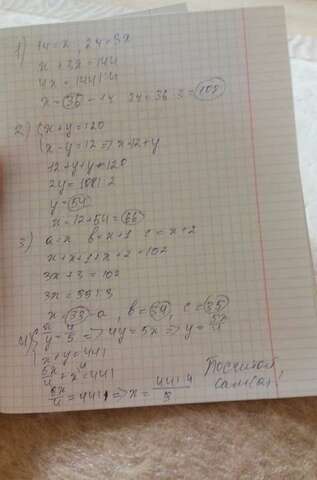 1) 1ч = x, 2ч = 3x
x + 3x = 144
4x = 144 | :4
x = 36 - 1ч 2ч = 36·3 = 108
2) { x + y = 120
x - y = 12 => x = 12 + y
12 + y + y = 120
2y = 108 | :2
y = 54
x = 12 + 54 = 66
3) a = x b = x + 1 c = x + 2
x + x + 1 + x + 2 = 102
3x + 3 = 102
3x = 99 | :3
x = 33 = a, b = 34, c = 35
4) { x/y = 4/5 => 4y = 5x => y = 5x/4
x + y = 441
5x/4 + x = 441
=> x =
Посчитай
сам(а)!